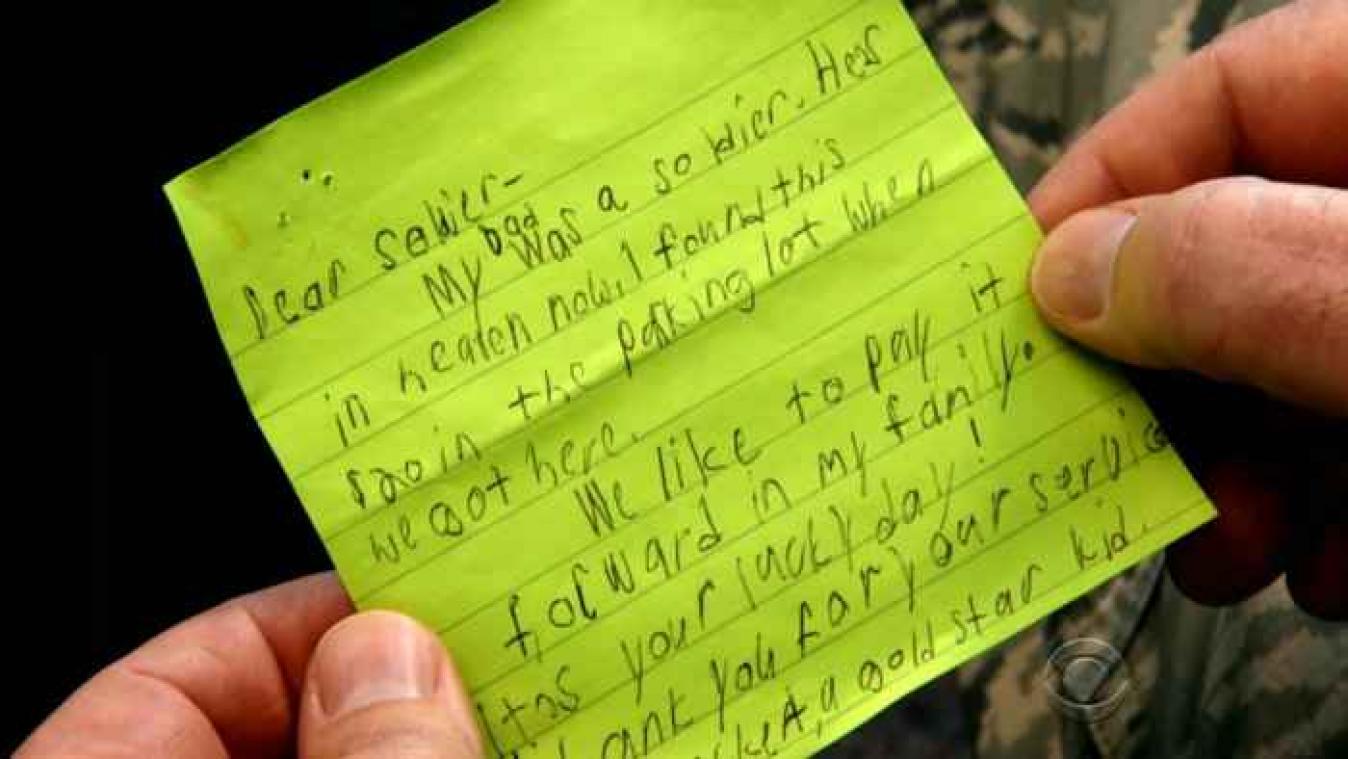 Dear solwier-
My Dad was a soldier. Hes
in heaven now. I found this
20 in the parking lot when
we got here.
We like to pay it
forward in my family.
Itas your lucky day!
ank you for your service
a gold star kid.